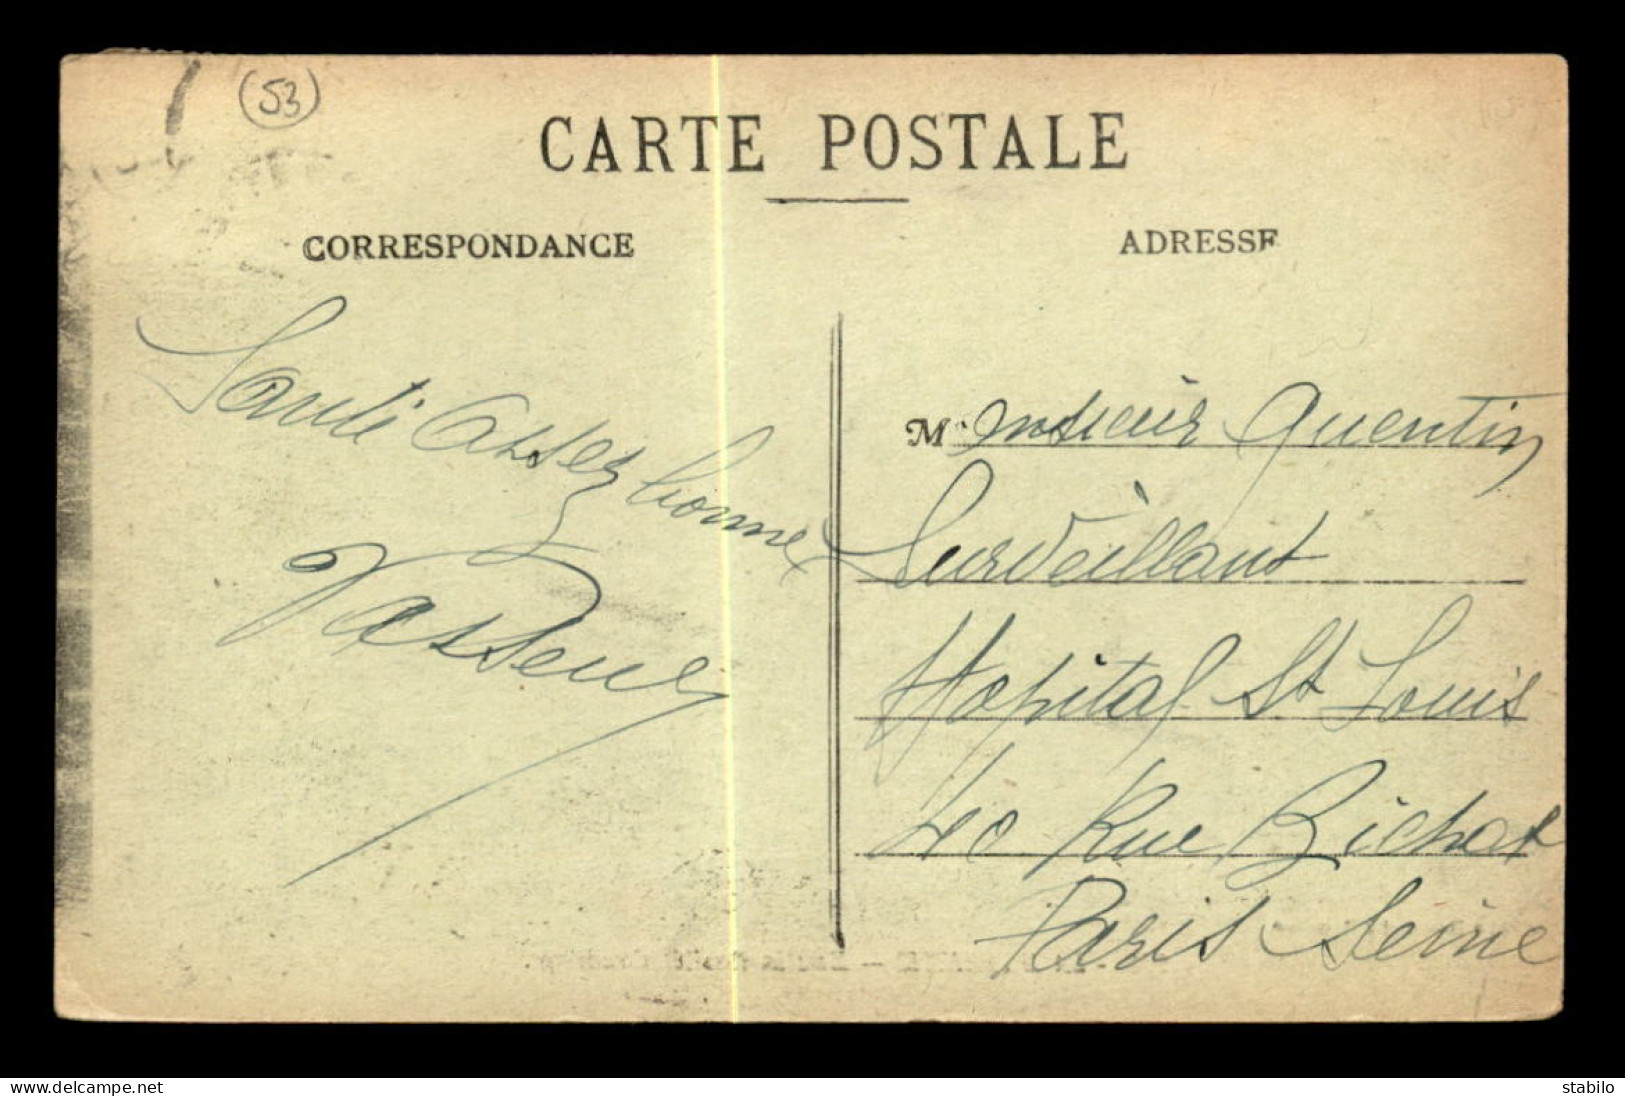 53
CARTE POSTALE
CORRESPONDANCE
ADRESSE
Santé assez bonne
Vasseur
M onsieur Quentin
Surveillant
Hopital St Louis
40 Rue Bichat
Paris Seine
www.delcampe.net
stabilo